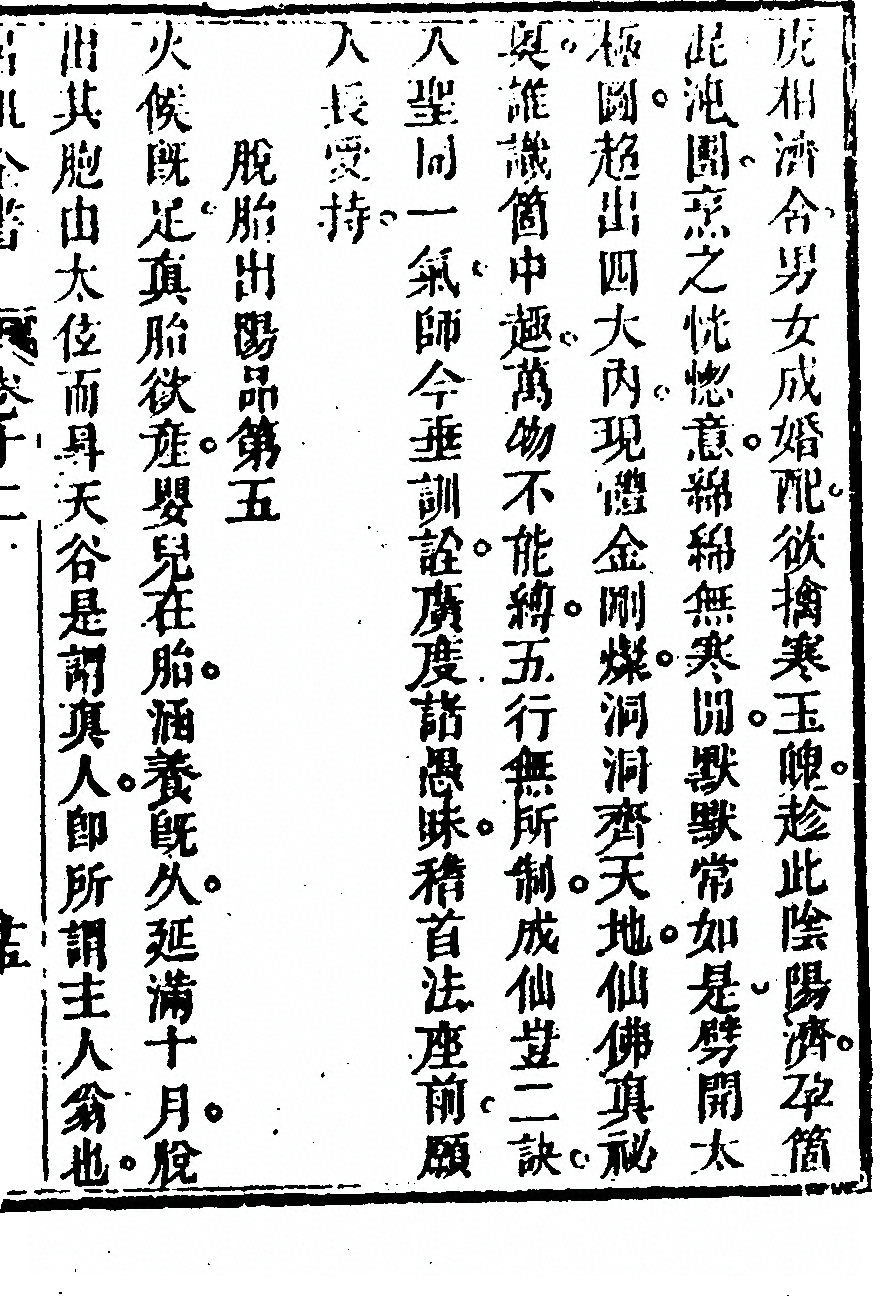 虎相濟合男女成婚配欲擒寒玉魄趁此陰陽濟孕箇
此沌團烹之恍惚意綿綿無寒閒默默常如是劈開太
極圖超出四大內現體金剛燦洞洞齊天地仙佛真祕
奧誰識箇中趣萬物不能縛五行無所制成仙豈二訣
入聖同一氣師今垂訓詮廣度諸愚昧稽首法座前願
人長受持
脫胎出陽品第五
火候既足真胎欲產嬰兒在胎涵養既久延滿十月脫
出其胞由太位而昇天谷是謂真人即所謂主人翁也
全書 卷十二